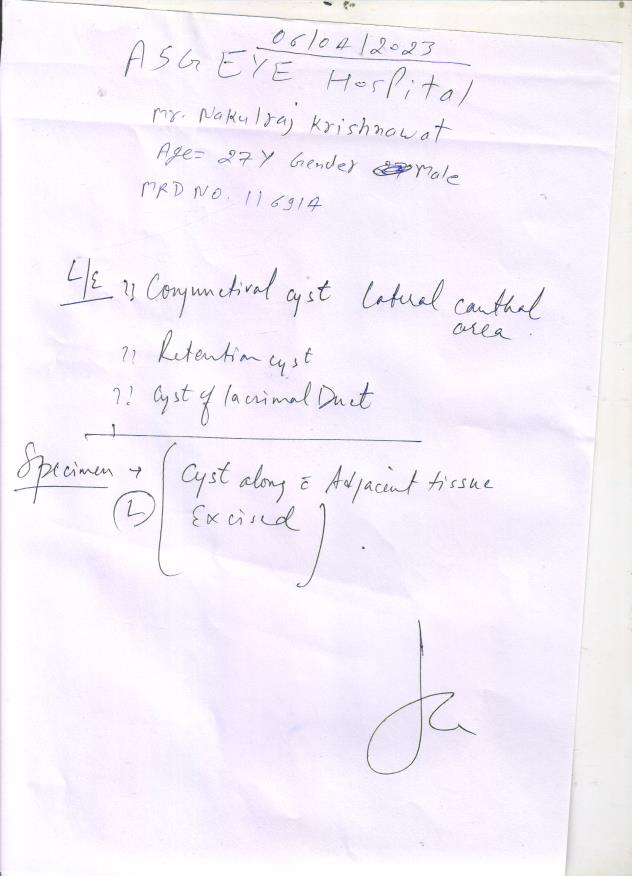 06/04/2023
ASG EYE Hospital
Mr. Nakulraj Krishnawat
Age= 27Y Gender Male
MRD NO. 11691A
L/E ?? Conjunctival cyst lateral canthal
area.
?? Retention cyst
?? Cyst of lacrimal Duct
Specimen → Cyst along c̄ Adjacent tissue
(L) Excised